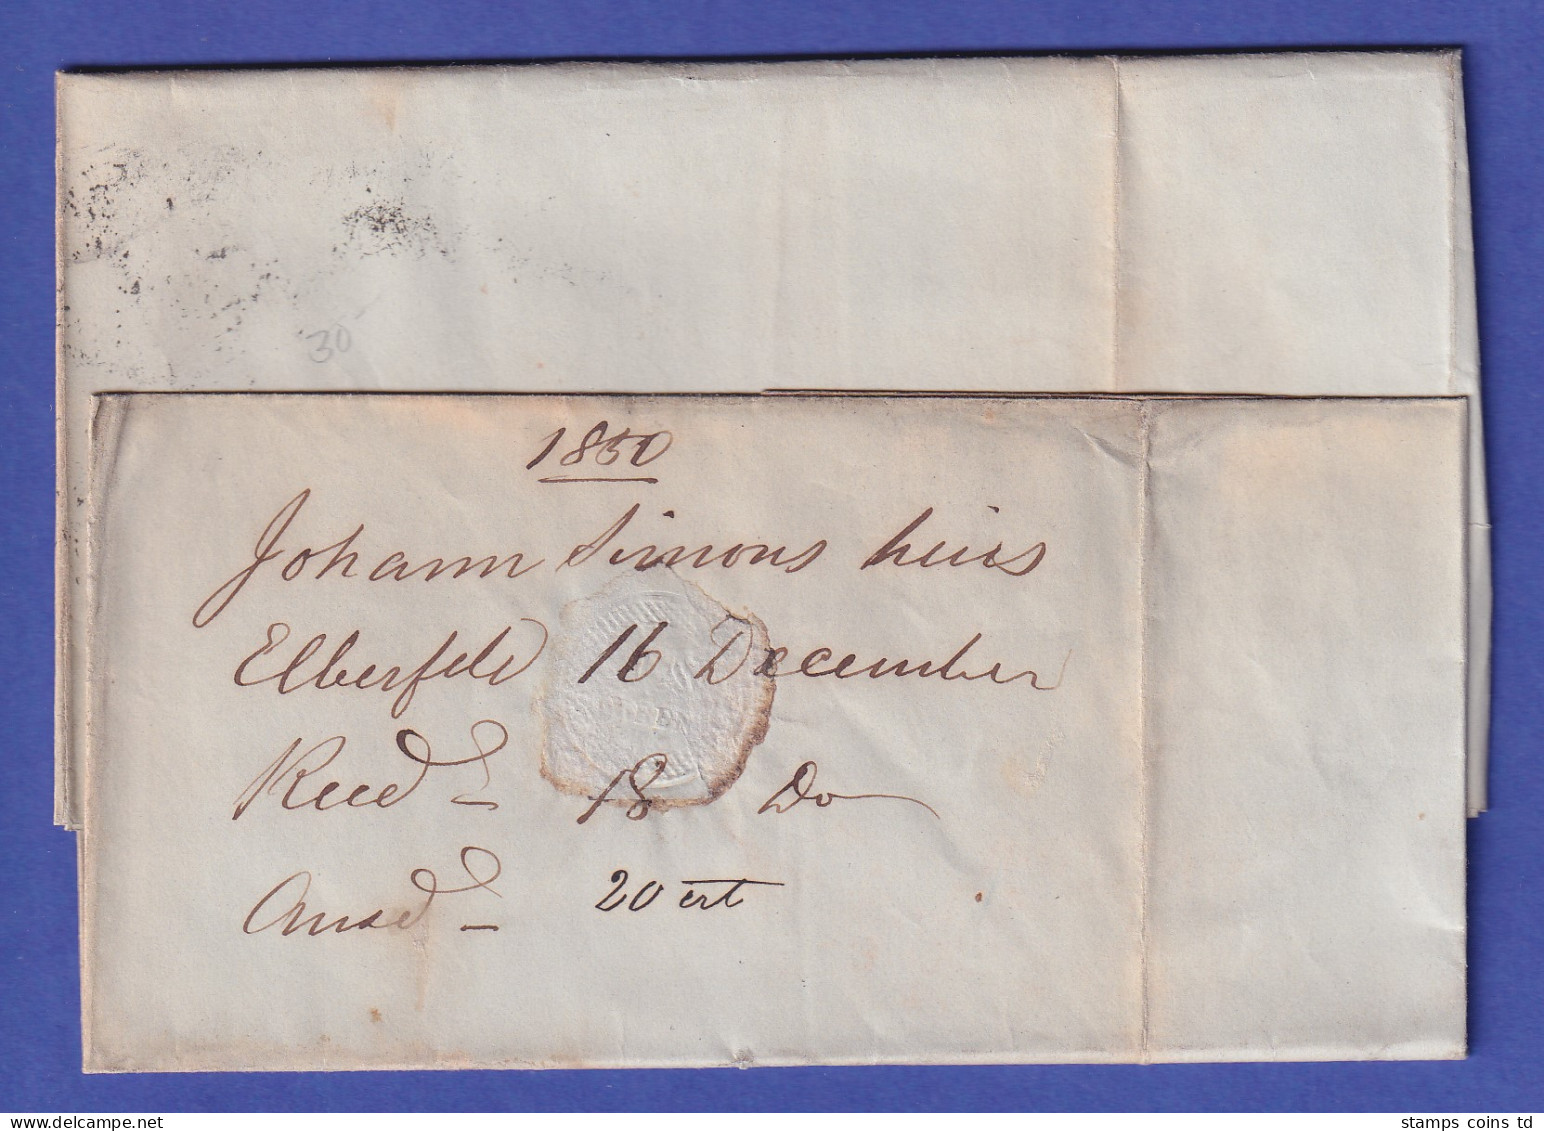 30
1850
Johann Simons heirs
Elberfeld 16 December
Recd 18 Do
Ansd 20
stamps coins td